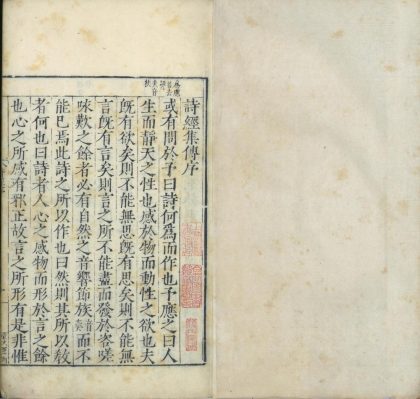 詩經集傳序
或有問於予曰詩何爲而作也予應之曰人
生而靜天之性也感於物而動性之欲也夫
旣有欲矣則不能無思旣有思矣則不能無
言旣有言矣則言之所不能盡而發於咨嗟
咏歎之餘者必有自然之音響節族音奏而不
能已焉此詩之所以作也曰然則其所以敎
者何也曰詩者人心之感物而形於言之餘
也心之所感有邪正故言之所形有是非惟